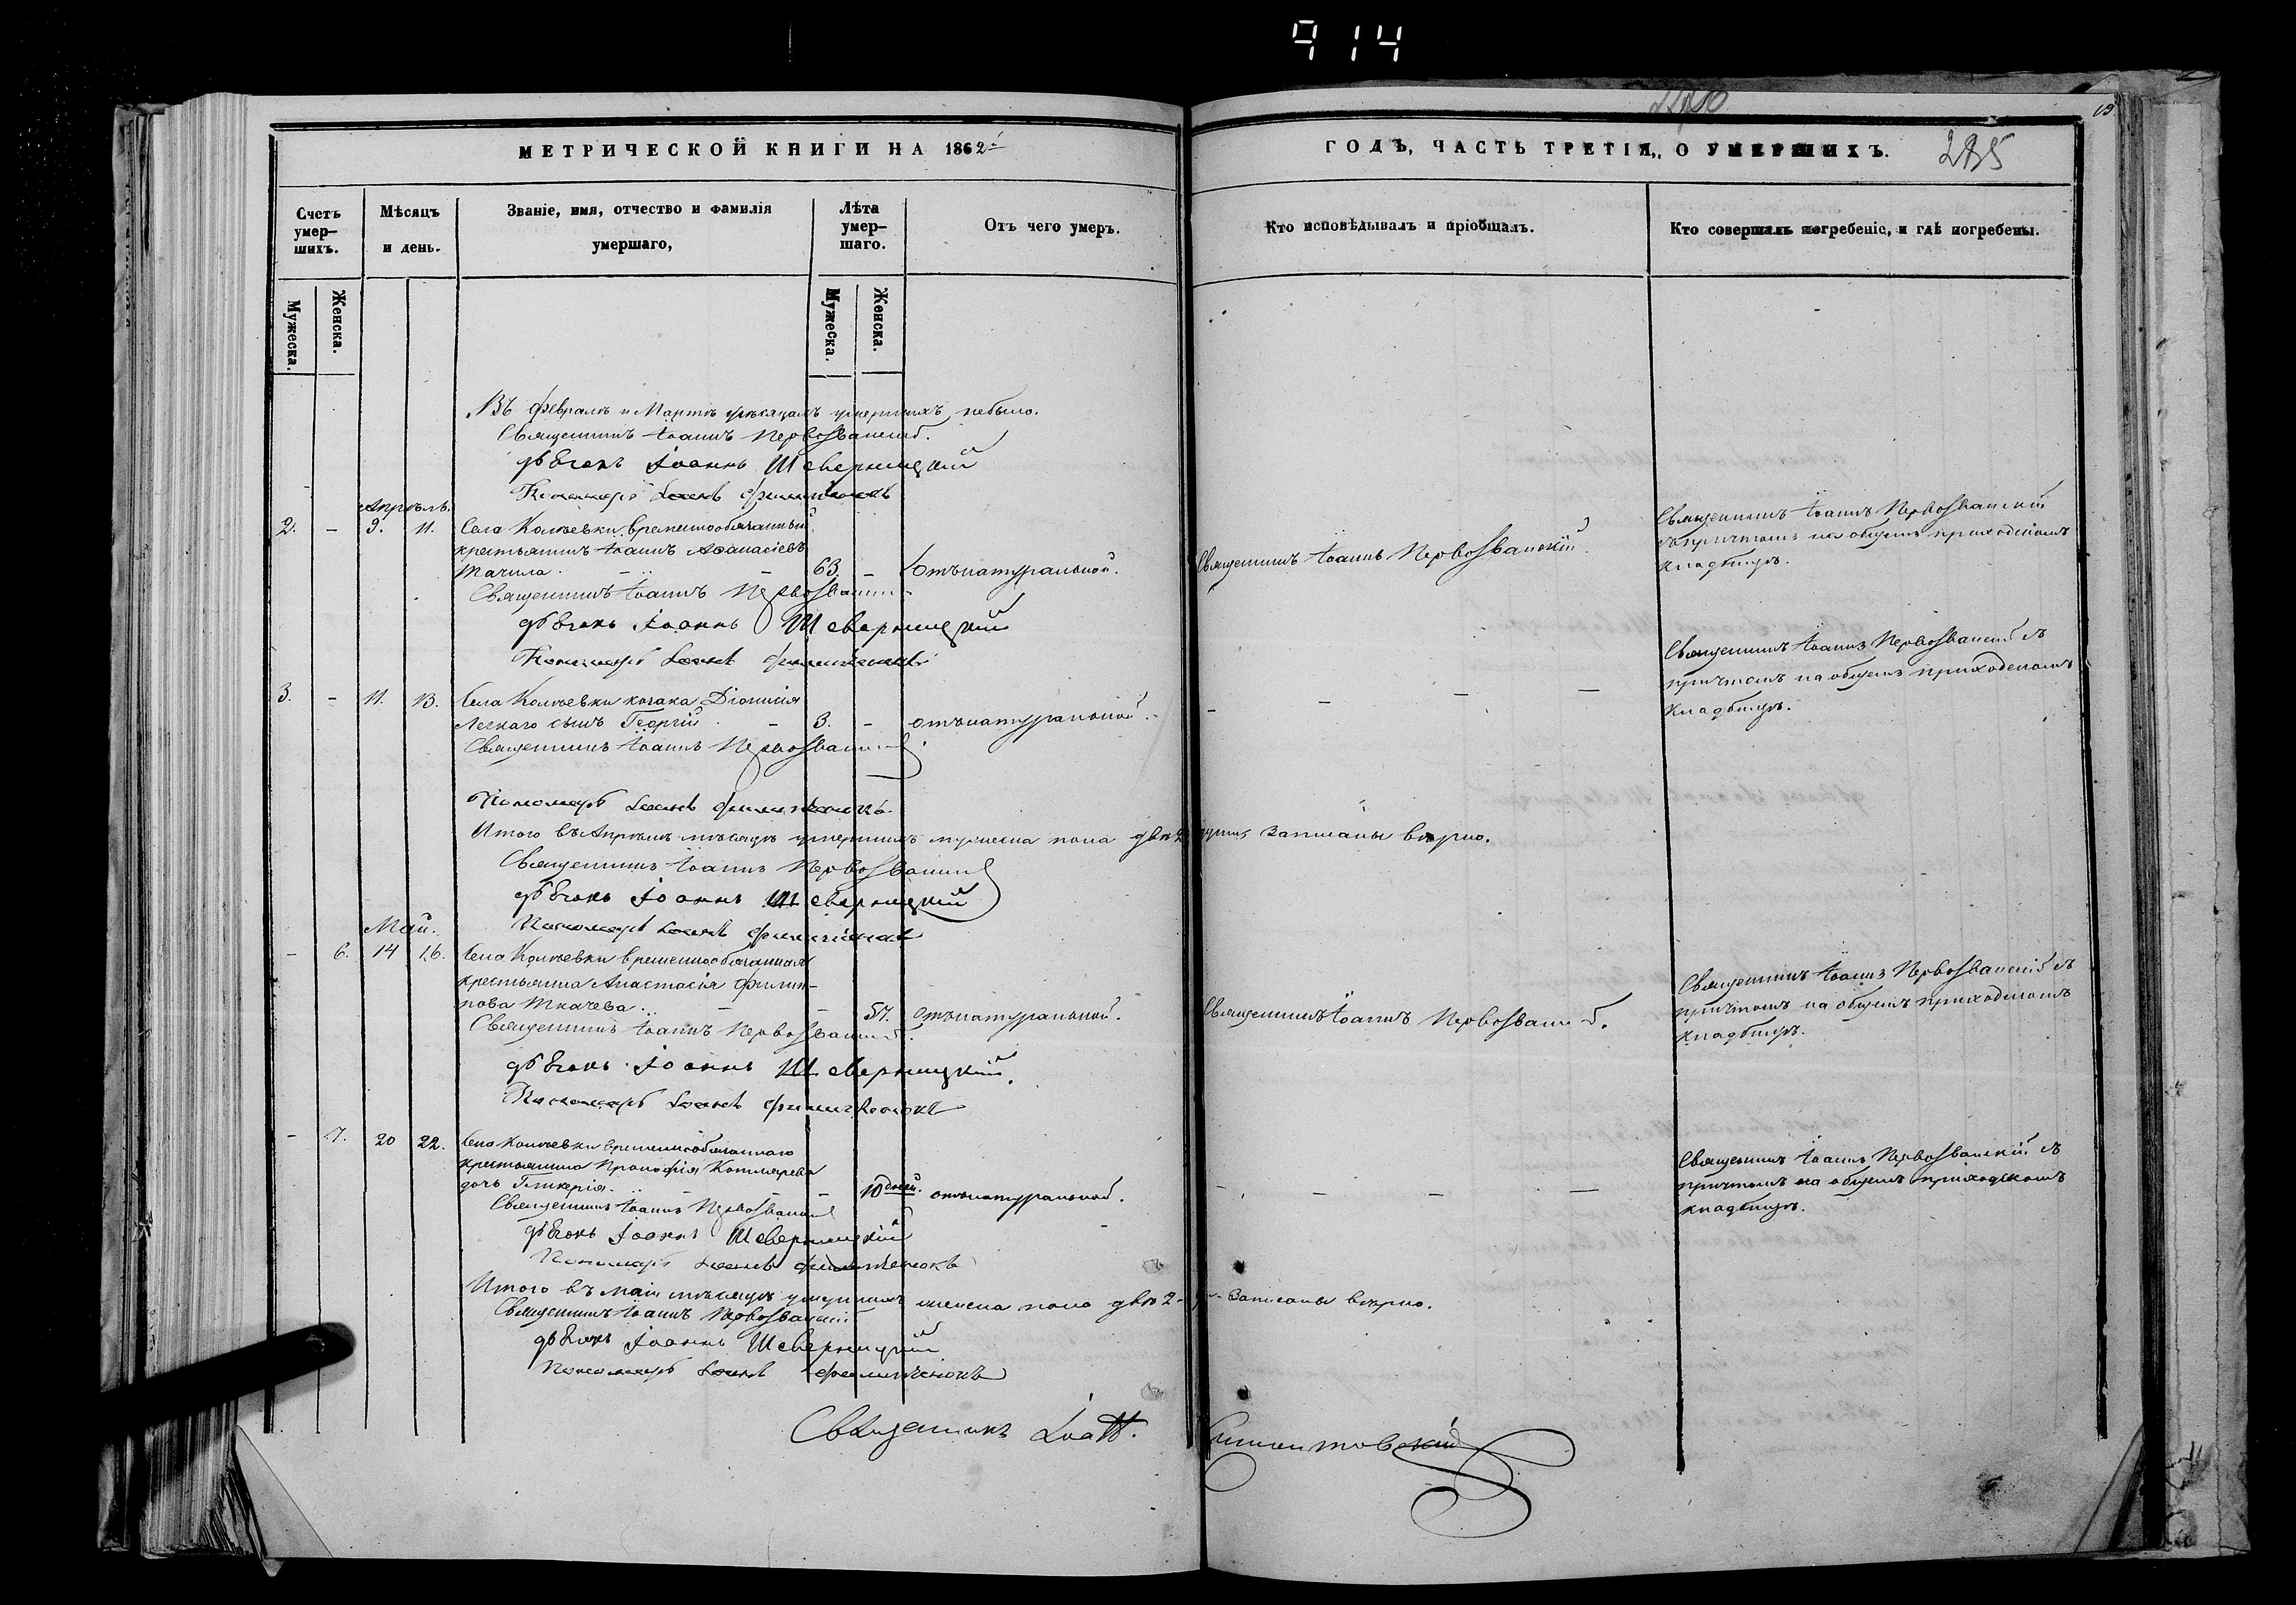 914
МЕТРИЧЕСКОЙ КНИГИ НА 1862й
ГОДЪ, ЧАСТЬ ТРЕТІЯ, О УМЕРШИХЪ.
285
Счетъ умер-
шихъ.
Мѣсяцъ
и день.
Званіе, имя, отчество и фамилія
умершаго,
Лѣта
умер-
шаго.
Отъ чего умеръ.
Кто исповѣдывалъ и пріобщалъ.
Кто совершалъ погребеніе, и гдѣ погребены.
Мужеска.
Женска.
Мужеска.
Женска.
Въ Февралѣ и Мартѣ мѣсяцахъ умершихъ небыло.
Священникъ Іоаннъ Первозванскій.
дьячокъ Іоаннъ Шеверницкій
Пономарь
Апрѣль.
2. – 9. 11. Села временнообязанный
крестьянинъ Іоаннъ Аѳанасіевъ
Тачила. – – 63. – Отъ натуральной.
Священникъ Іоаннъ Первозванскій.
Священникъ Іоаннъ Первозванскій
съ причтомъ на общемъ приходскомъ
кладбищѣ.
Священникъ Іоаннъ Первозванскій
дьячокъ Іоаннъ Шеверницкій
Пономарь
3. – 11. 13. Села козака Діонисія
Легкаго сынъ Георгій. – 3. – отъ натуральной. – – –
Священникъ Іоаннъ Первозванскій съ
причтомъ на общемъ приходскомъ
кладбищѣ.
Священникъ Іоаннъ Первозванскій
Пономарь
Итого въ Апрѣлѣ мѣсяцѣ умершихъ мужеска пола двѣ 2 души, записаны вѣрно.
Священникъ Іоаннъ Первозванскій
дьячокъ Іоаннъ Шеверницкій
Пономарь
Май.
– 6. 14 16. Села временнообязанная
крестьянка Анастасія Филип-
пова Ткачева. – – 57. Отъ натуральной.
Священникъ Іоаннъ Первозванскій.
Священникъ Іоаннъ Первозванскій съ
причтомъ на общемъ приходскомъ
кладбищѣ.
Священникъ Іоаннъ Первозванскій.
дьячокъ Іоаннъ Шеверницкій.
Пономарь
– 7. 20 22. Села временнообязаннаго
крестьянина Прокофія Котлярева
дочь Гликерія. – – – 10 дней. отъ натуральной. – – – –
Священникъ Іоаннъ Первозванскій съ
причтомъ на общемъ приходскомъ
кладбищѣ.
Священникъ Іоаннъ Первозванскій
дьячокъ Іоаннъ Шеверницкій
Пономарь
Итого въ маіи мѣсяцѣ умершихъ женска пола двѣ 2 – записаны вѣрно.
Священникъ Іоаннъ Первозванскій
дьячокъ Іоаннъ Шеверницкій
Пономарь
Священникъ Іоан.